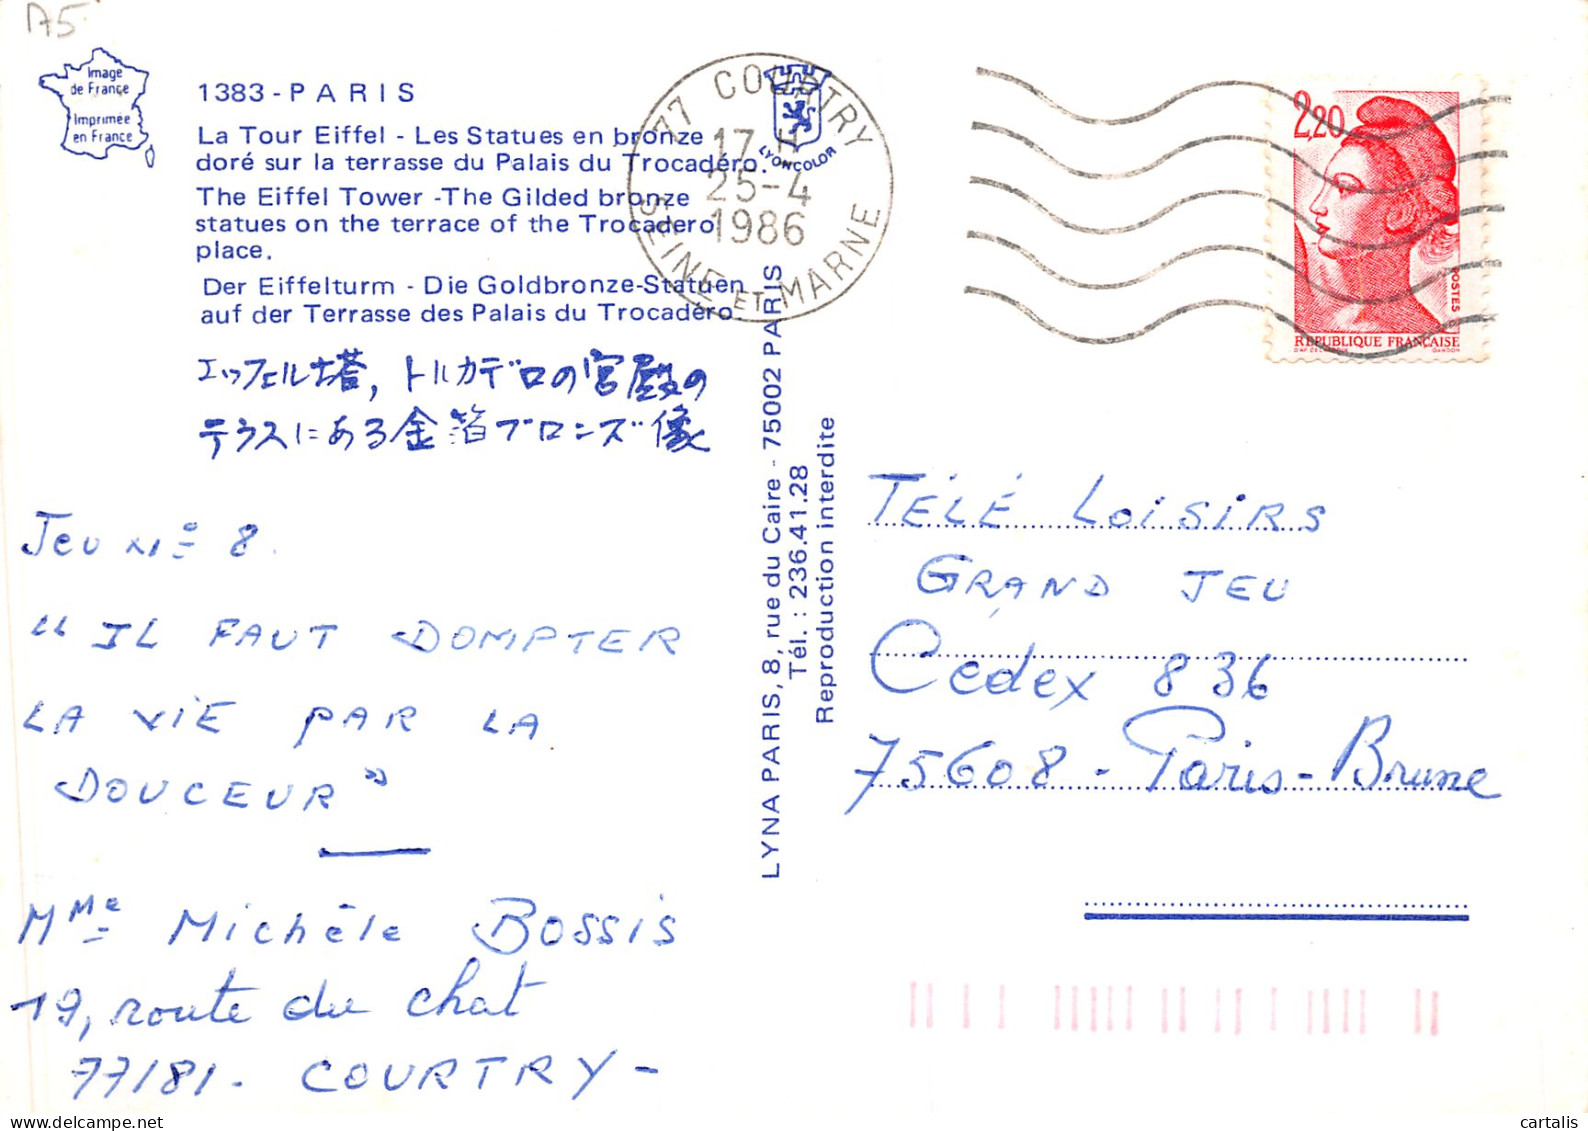 A5
Image
de France
Imprimée
en France
1383 - PARIS
La Tour Eiffel - Les Statues en bronze
doré sur la terrasse du Palais du Trocadéro.
The Eiffel Tower -The Gilded bronze
statues on the terrace of the Trocadero
place.
Der Eiffelturm - Die Goldbronze-Statuen
auf der Terrasse des Palais du Trocadéro
エッフェル塔,トルカデロの宮殿の
テラスにある金箔ブロンズ像
Jeu N° 8.
"IL FAUT DOMPTER
LA VIE PAR LA
DOUCEUR"
MMe Michèle BOSSIS
19, route du chat
77181. COURTRY -
LYONCOLOR
77 COURTRY
17 H
25-4
1986
SEINE ET MARNE
LYNA PARIS, 8, rue du Caire - 75002 PARIS
Tél. : 236.41.28
Reproduction interdite
2,20
POSTES
REPUBLIQUE FRANÇAISE
GANDON
TÉLÉ LOISIRS
GRAND JEU
Cedex 836
75608 - Paris-Brune
cartalis
delcampe.net